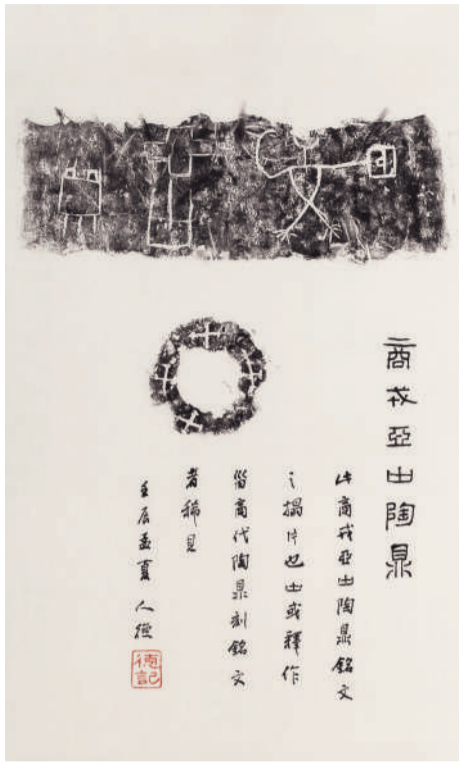 商戎亞由陶鼎
此商戎亞由陶鼎銘文
之搨片也由或釋作
甾商代陶鼎刻銘文
者稀見
壬辰孟夏 人德
德記